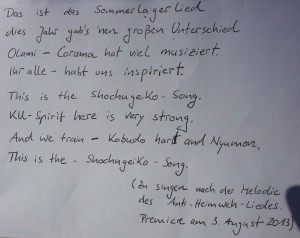 Das ist das Sommerlager Lied
dies Jahr gab's nen großen Unterschied
Olami - Corama hat viel musiziert.
Ihr alle - habt uns inspiriert.
This is the Shochugeiko - Song.
KU-Spirit here is very strong.
And we train - Kobudo hard and Nyumon.
This is the - Shochugeiko - Song.
(Zu singen nach der Melodie
des Anti-Heimweh-Liedes.
Premiere am 3. August 2013)